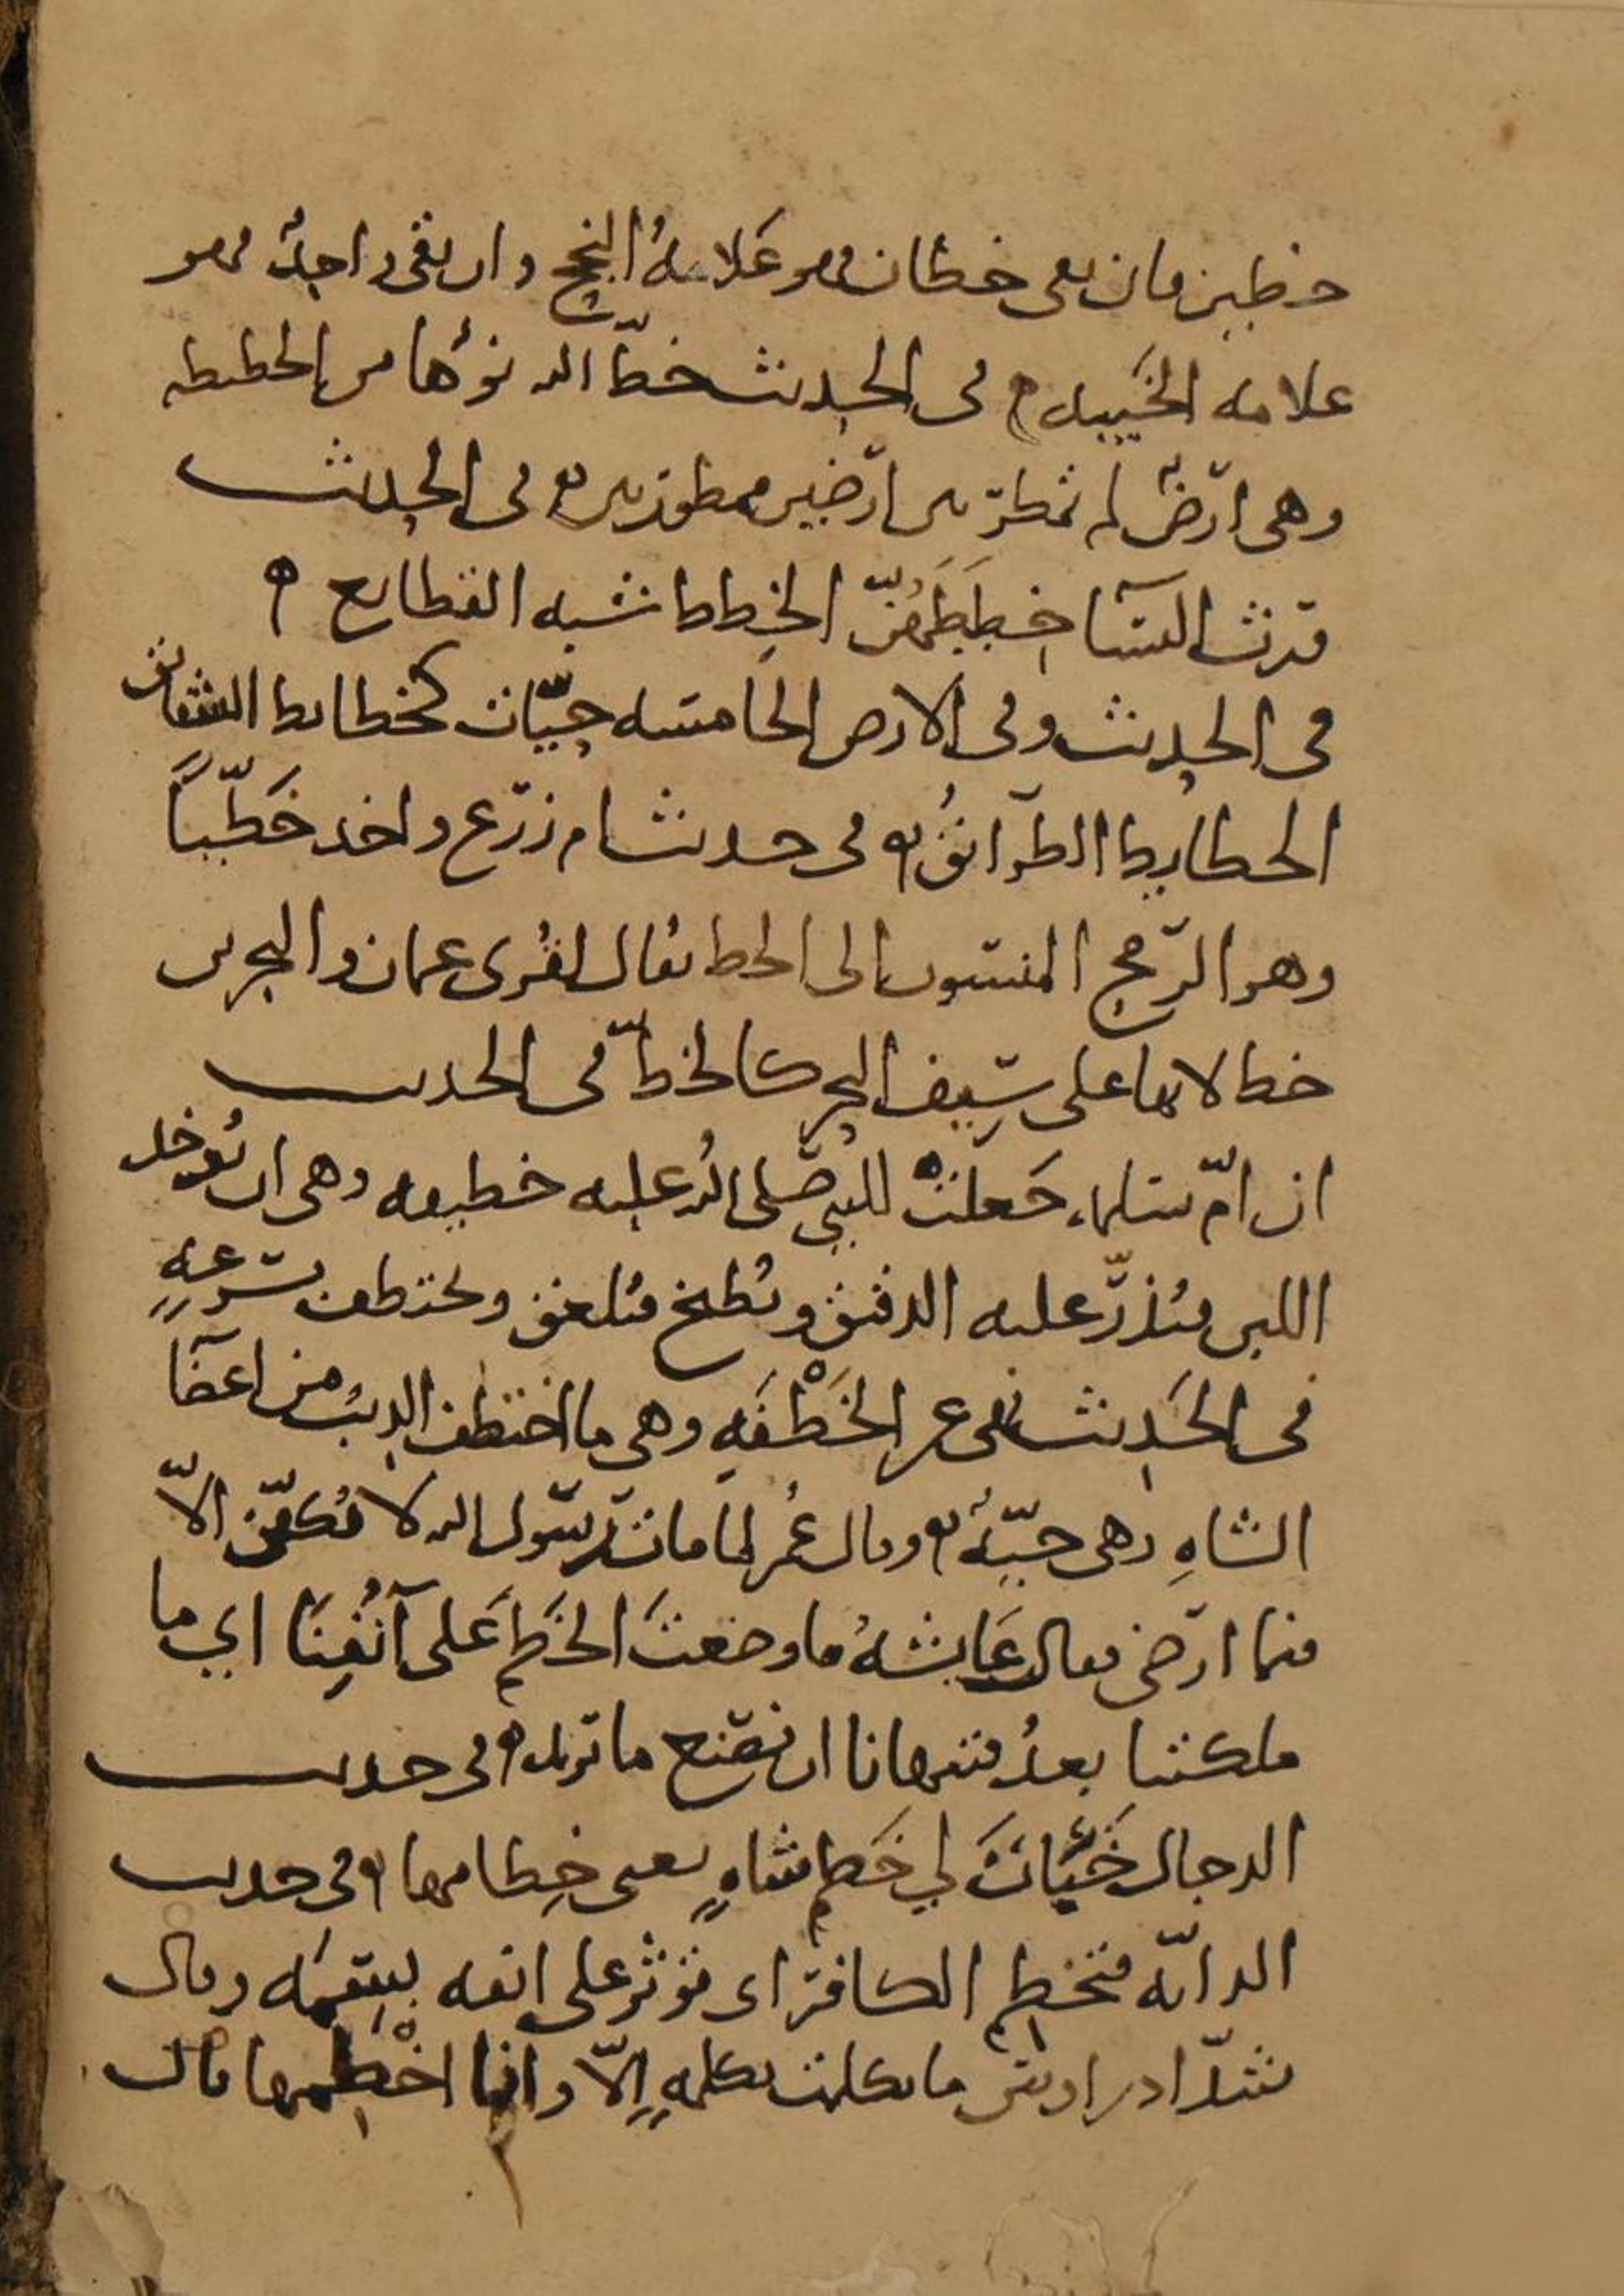 خطين فان بقى خطان فهو علامةُ النجح وان بقى واحدٌ فهو
علامه الخيبه في الحديث خطّ الله نوْءها من الخطيطه
وهى ارضٌ لم تمطر بين ارضين ممطورتين في الحديث
ورث النسا خِططَهُنّ الخِطط شبه القطايع
في الحديث وفى الارض الخامسه حيّات كخطايط الشقائق
الخطايط الطرائقُ في حديث ام زرع واخذ خَطّيّاً
وهو الرمح المنسوب الى الخط يقال لقُرى عمان والبحرين
خط لانها على سِيف البحر كالخطّ في الحديث
ان امّ سليم جَعلتْ للنبي صلى الله عليه خطيفه وهى ان يُوخذ
اللبن فيُذرّ عليه الدقيق ويُطبخ فيُلعق ويختطف بسرعهٍ
في الحَديث نهى عن الخَطْفَهِ وهى ما اختطف الذيبُ من اعضآ
الشاهِ وهى حيّهٌ وقال عُمر لما مات رسول الله لا يُكفّن الاّ
فيما ارضى فقالت عَايشهُ ما وضعتَ الخَطم عَلى آنُفِنَا اي ما
ملكتنا بعدُ فتنهانا ان نصنع ما نريد في حديث
الدجال خَبّاتَ لي خَطم شاهٍ يعنى خِطامها في حديث
الدابّه فتخطم الكافر اى توثر على انفه بسِمه وقال
شدّاد بن اوس ما تكلمت بكلمهٍ اِلاّ وانا اخْطِمها قال